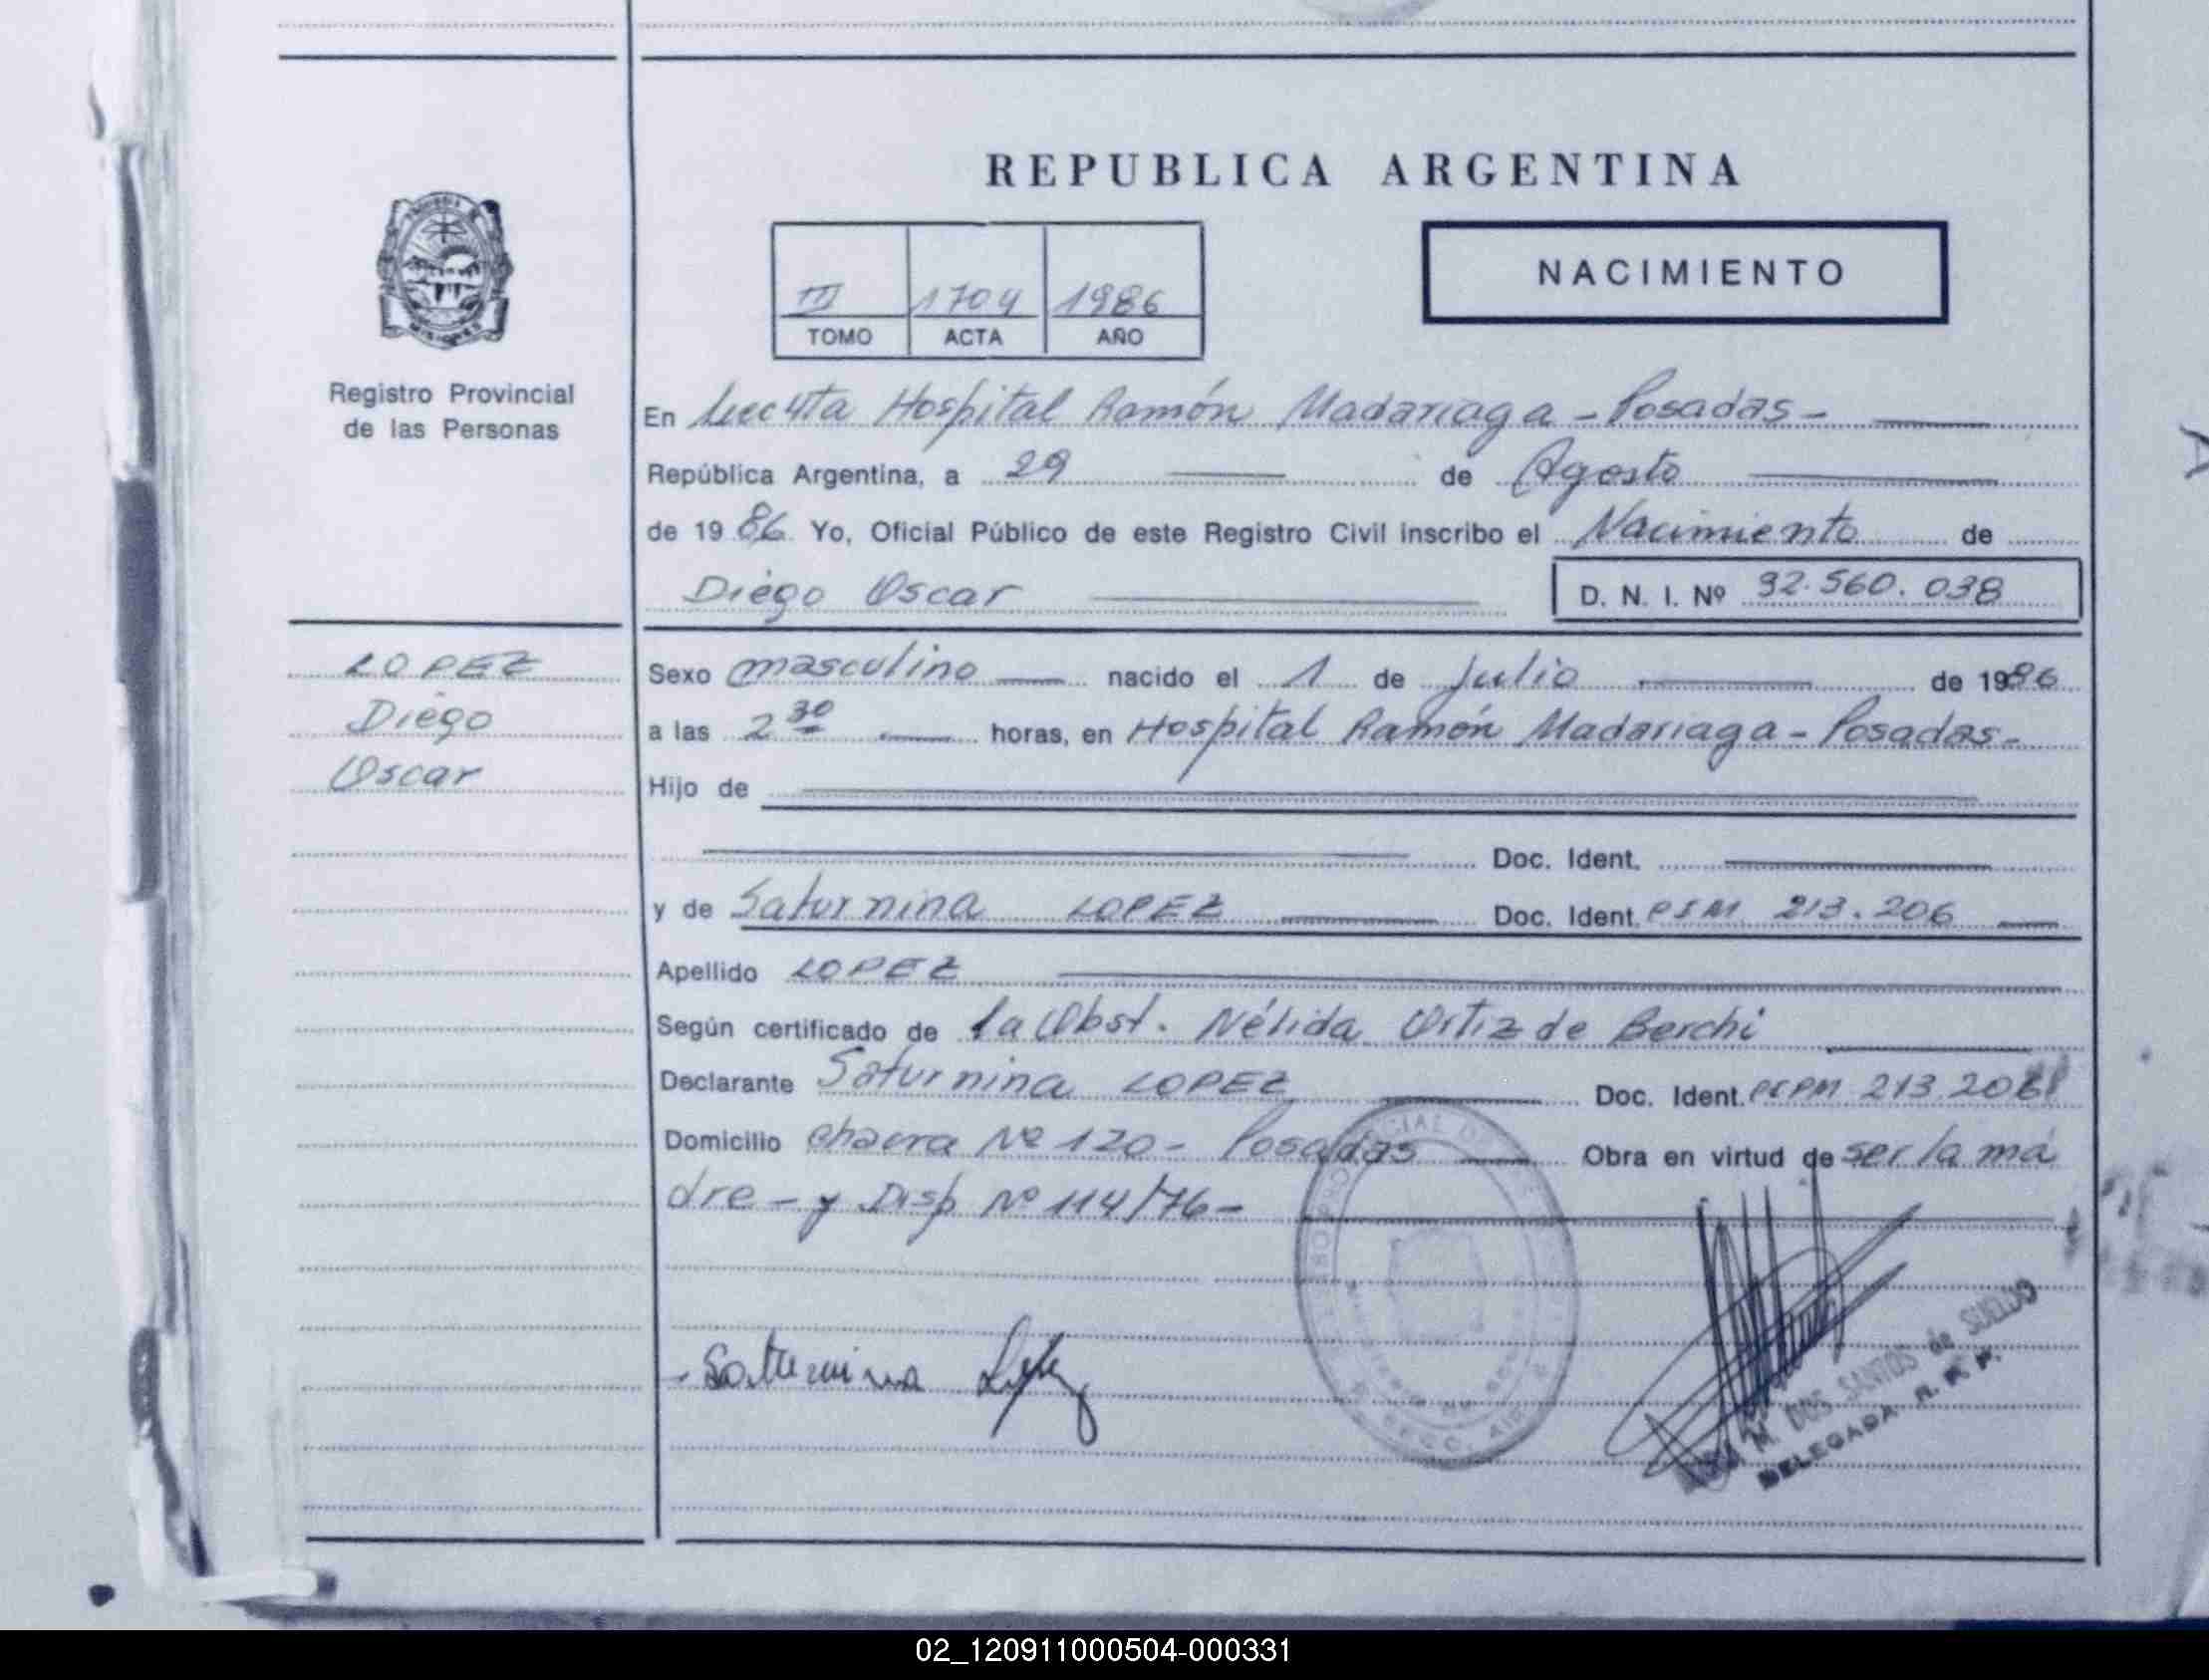 REPUBLICA ARGENTINA
NACIMIENTO
III 1704 1986
TOMO ACTA AÑO
Registro Provincial
de las Personas
En Secc 4ta Hospital Ramón Madariaga - Posadas -
República Argentina, a 29 de Agosto
de 1986 Yo, Oficial Público de este Registro Civil inscribo el Nacimiento de
Diego Oscar D. N. I. Nº 92.560.038
LOPEZ
Diego
Oscar
Sexo masculino nacido el 1 de Julio de 1986
a las 2 30 horas, en Hospital Ramón Madariaga - Posadas -
Hijo de
Doc. Ident.
y de Saturnina LOPEZ Doc. Ident. 213.206
Apellido LOPEZ
Según certificado de la Obst. Nélida Ortiz de Berchi
Declarante Saturnina LOPEZ Doc. Ident. 213.206
Domicilio Chacra Nº 120 - Posadas Obra en virtud de ser la ma
dre - y Disp Nº 114/76 -
Saturnina López
M. DOS SANTOS de SUELDO
DELEGADA R. P. P.
02_120911000504-000331